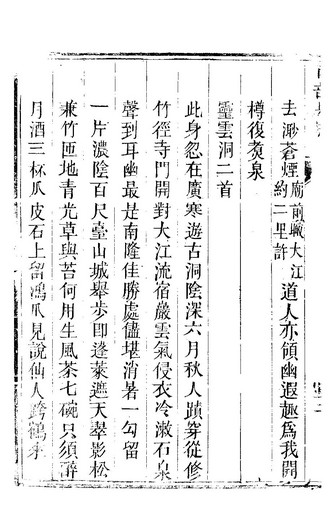 去渺蒼煙廟前職大江約二里許道人亦領幽遐趣為我開
樽復煑泉
靈雲洞二首
此身忽在廣寒遊古洞陰深六月秋人蹟穿從修
竹徑寺門開對大江流宿巖雲氣侵衣冷漱石泉
聲到耳幽最是南隆佳勝處儘堪消暑一勾留
一片濃陰百尺臺山城舉步即蓬萊遮天翠影松
兼竹匝地青光草與苔何用生風茶七碗只須醉
月酒三杯瓜皮石上留鴻爪見說仙人跨鶴來